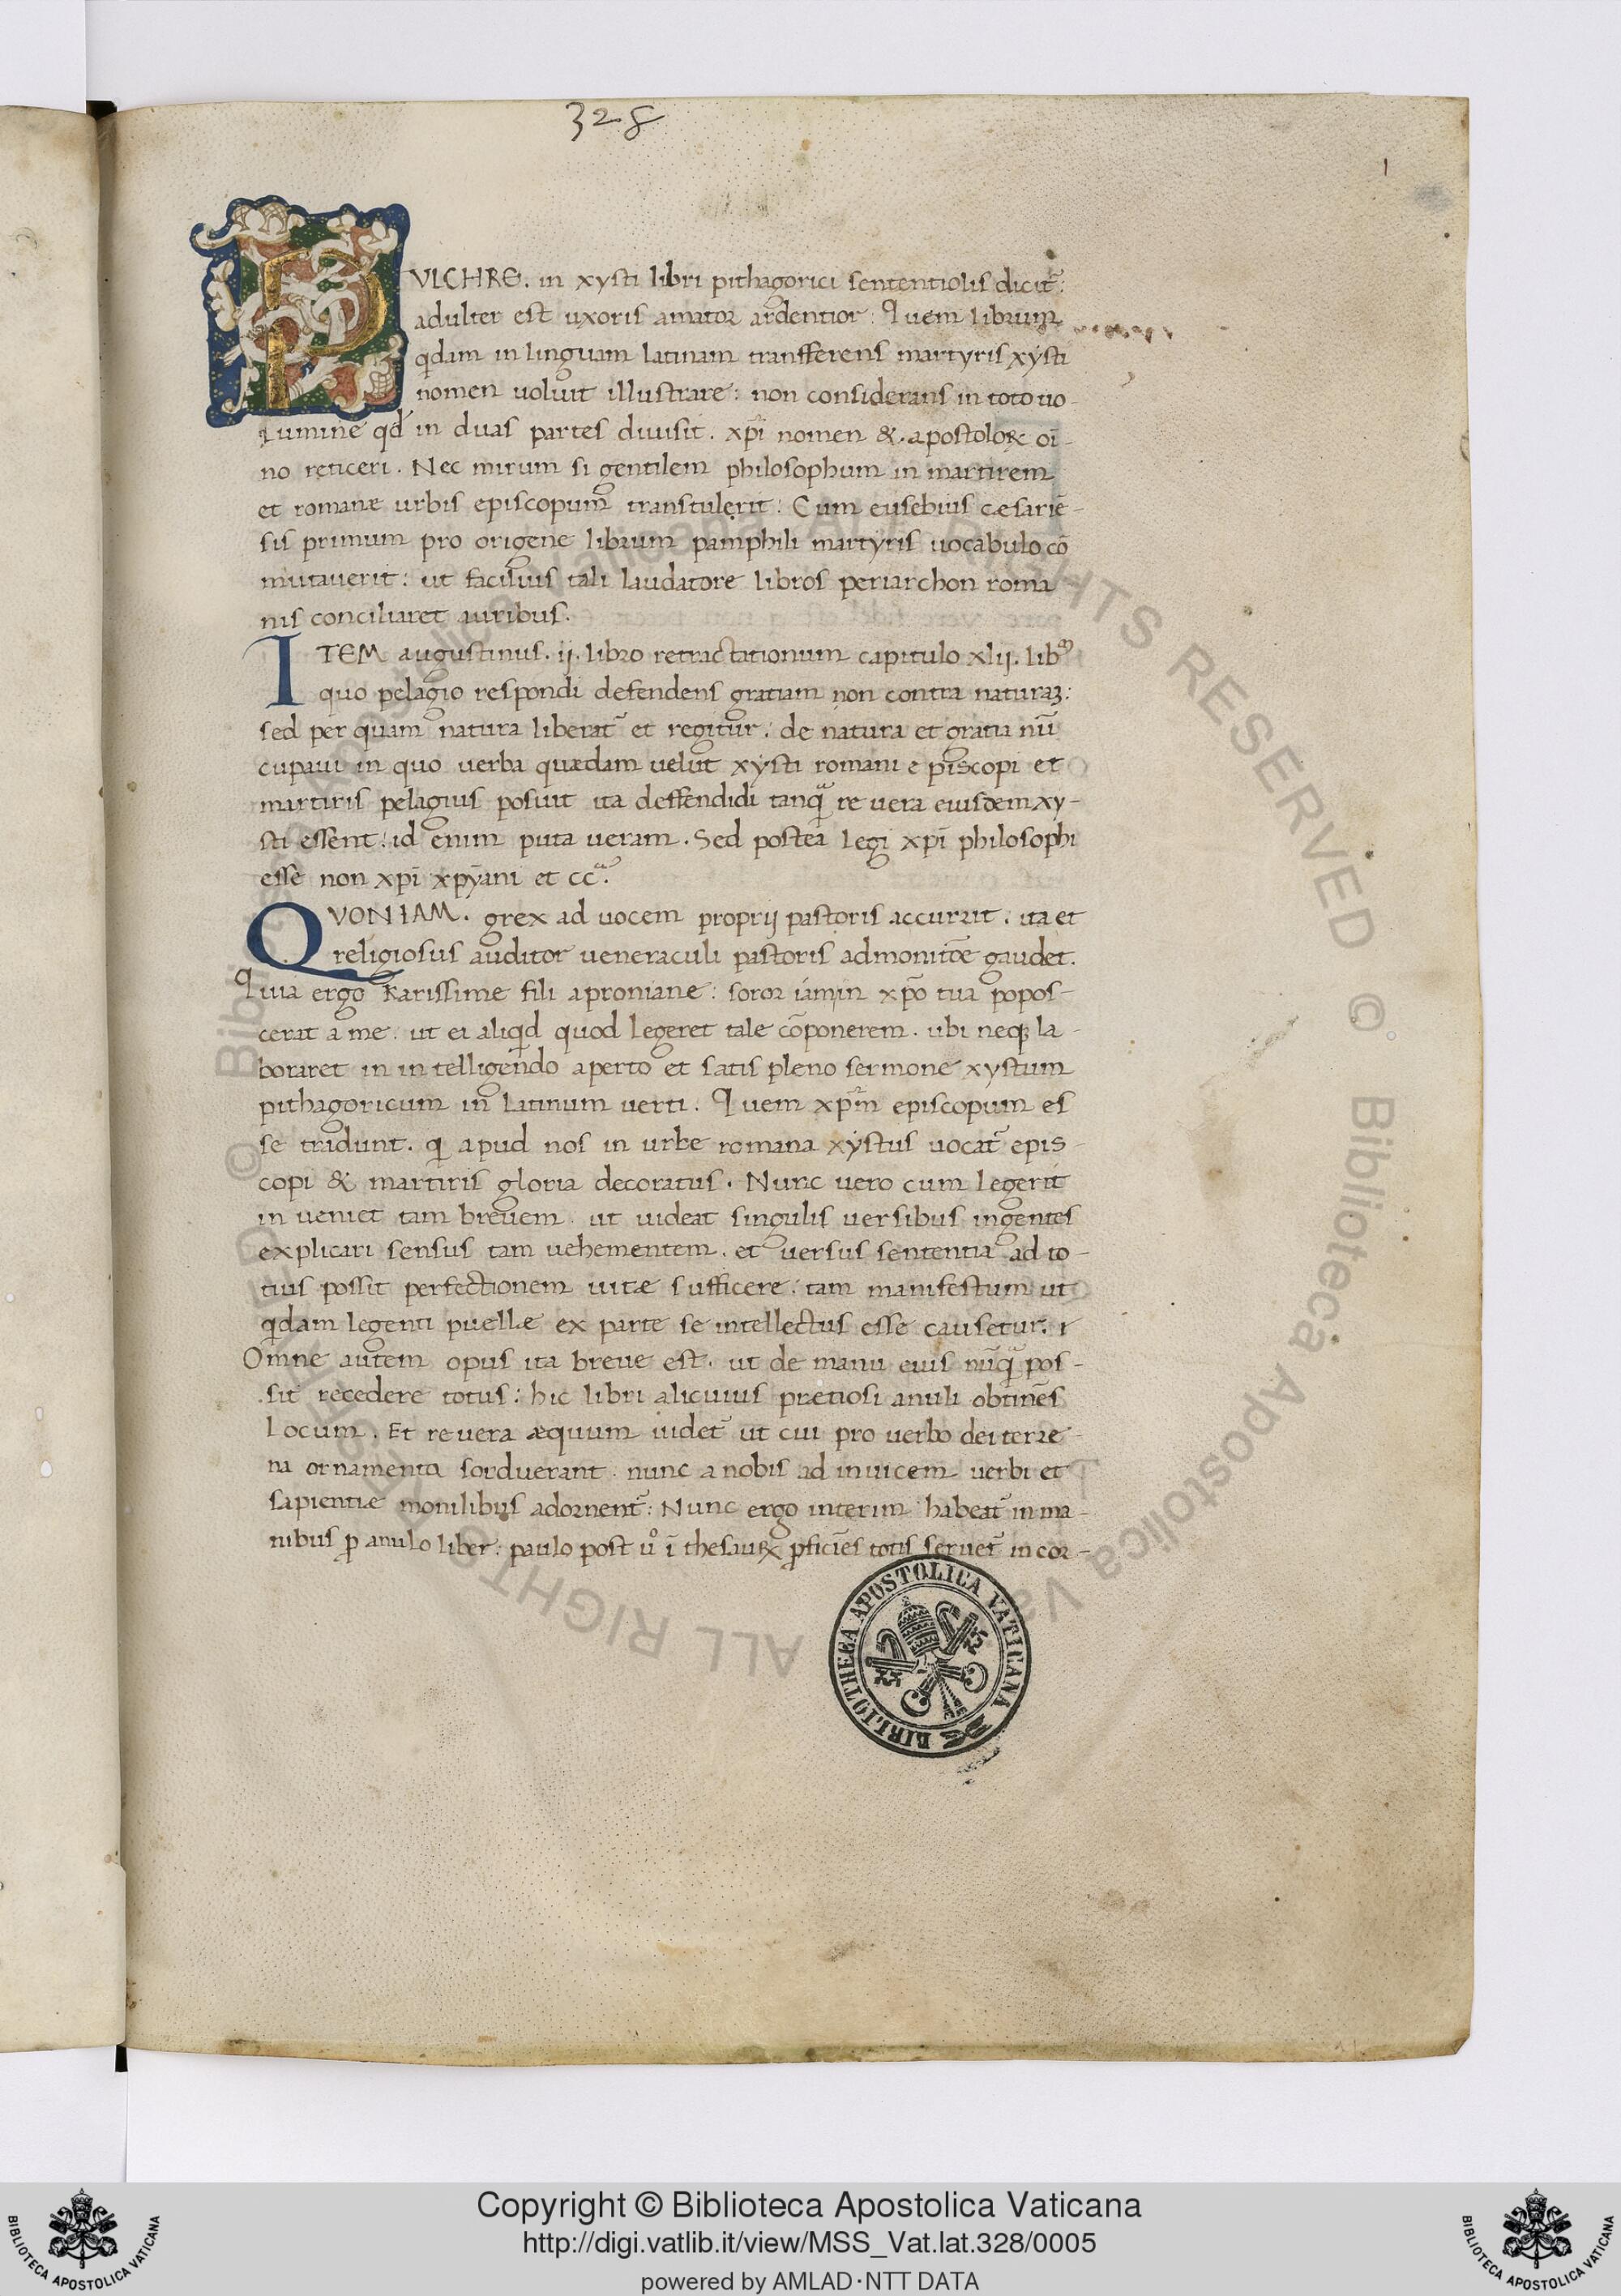 328
1
PVLCHRE. in xysti libri pithagorici sententiolis dicit̃:
adulter est uxoris amator ardentior: Quem librum
qdam in linguam latinam transferens martyris xysti
nomen uoluit illustrare: non considerans in toto uo-
lumine qd̄ in duas partes diuisit. xp̄i nomen &. apostoloꝝ oī-
no reticeri. Nec mirum si gentilem philosophum in martirem
et romanæ urbis episcopum transtulerit: Cum eusebius cesariē-
sis primum pro origene librum pamphili martyris uocabulo cō
mutauerit: ut facilius tali laudatore libros periarchon roma
nis conciliaret auribus.
ITEM augustinus. ij. libro retractationum capitulo xlij. lib
quo pelagio respondi defendens gratiam non contra naturaꝫ:
sed per quam natura liberat̃ et regitur: de natura et gratia nū
cupaui in quo uerba quædam uelut xysti romani e piscopi et
martiris pelagius posuit ita deffendidi tanqᷓ re uera eiusdem xy-
sti essent: id enim puta ueram. Sed postea legi xp̄i philosophi
esse non xp̄i xp̄yani et ccᷓ.
QVONIAM. grex ad uocem proprij pastoris accurrit. ita et
religiosus auditor ueneraculi pastoris admonitōe gaudet.
Quia ergo karissime fili aproniane: soror iam in xp̄o tua popos-
cerat a me. ut ei aliqd quod legeret tale cōponerem. ubi neqꝫ la-
boraret in in telligendo aperto et satis pleno sermone xystum
pithagoricum in latinum uerti. Quem xp̄m episcopum es
se tradunt. qi apud nos in urbe romana xystus uocat̃ epis-
copi & martiris gloria decoratus. Nunc uero cum legerit
in ueniet tam breuem. ut uideat singulis uersibus ingentes
explicari sensus tam uehementem. et uersus sententia ad to-
tius possit perfectionem uitæ sufficere: tam manifestum ut
qdam legenti puellæ ex parte se intellectus esse causetur.
Omne autem opus ita breue est. ut de manu eius nūqᷓ pos-
sit recedere totus: hic libri alicuius prætiosi anuli obtinēs
locum. Et reuera æquum uidet̃ ut cui pro uerbo dei terre-
na ornamenta sorduerant. nunc a nobis ad inuicem uerbi et
sapientiæ monilibus adornent̃: Nunc ergo interim habeat̃ in ma-
nibus ꝑ anulo liber: paulo post u̇ ī thesauꝝ ꝓficiēs totis seruet̃ in cor-
BIBLIOTHECA APOSTOLICA VATICANA
© Biblioteca Apostolica Vaticana ALL RIGHTS RESERVED © Biblioteca Apostolica Vaticana ALL RIGHTS RESERVED
Copyright © Biblioteca Apostolica Vaticana
http://digi.vatlib.it/view/MSS_Vat.lat.328/0005
powered by AMLAD·NTT DATA
BIBLIOTECA APOSTOLICA VATICANA
BIBLIOTECA APOSTOLICA VATICANA